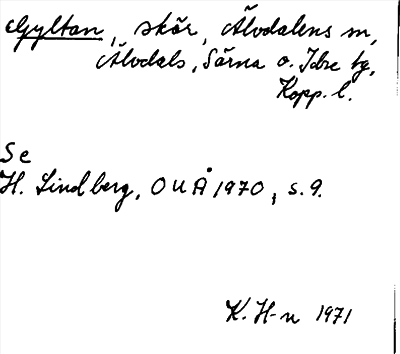 Gyltan, skär, Älvdalens m,
Älvdals, Särna o. Idre tg,
Kopp. l.
Se
H. Lindberg, OUÅ 1970, s. 9.
K. H-n 1971